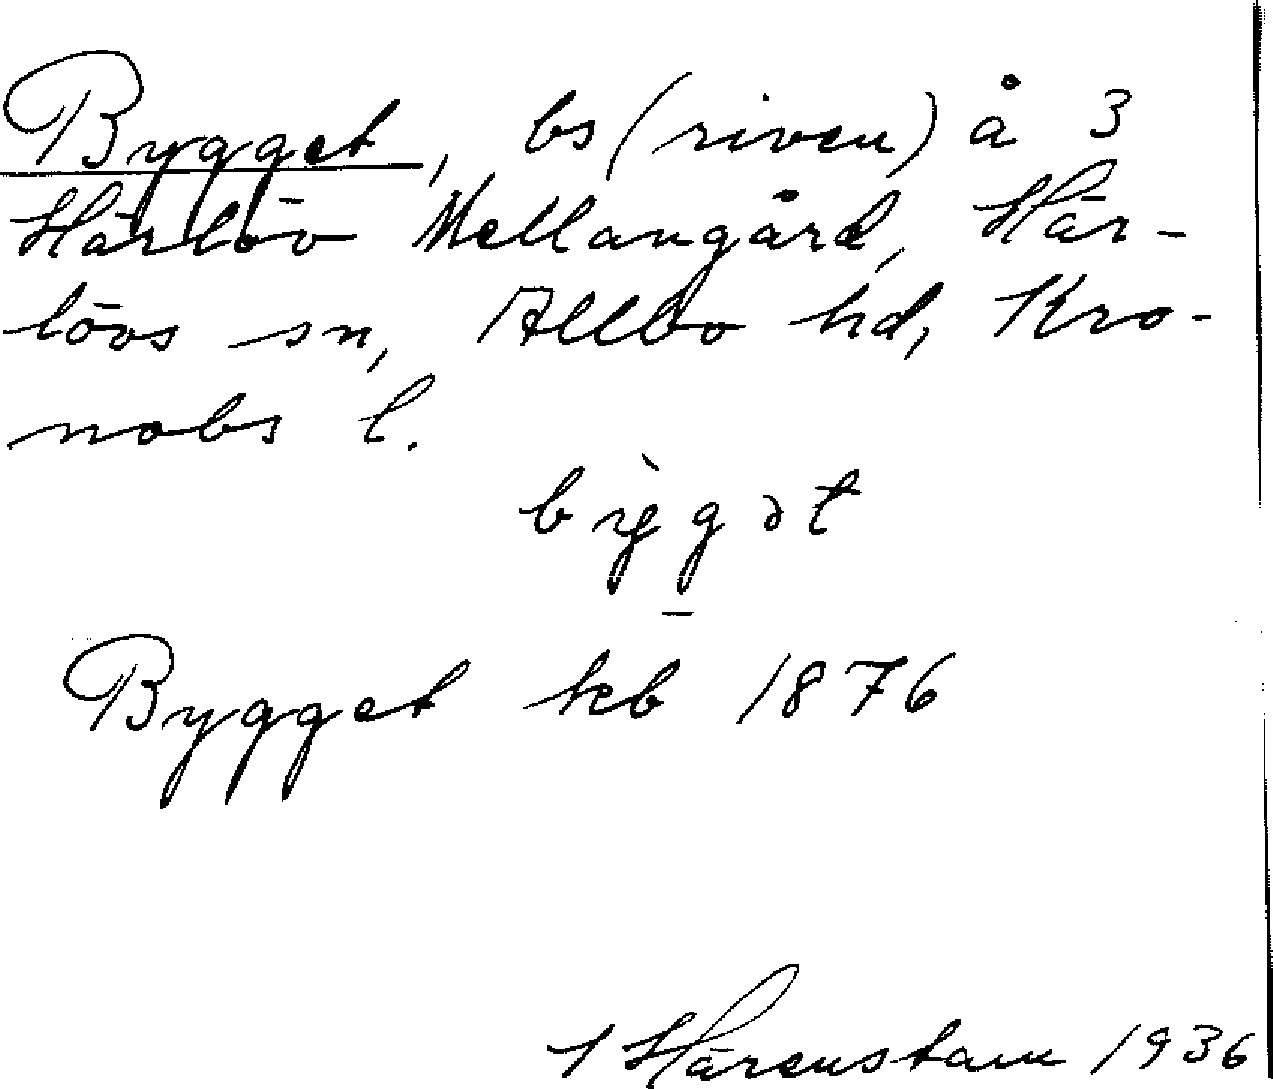 Bygget, bs (riven) å 3
Härlöv Mellangård, Här-
lövs sn, Allbo hd, Kro-
nobs l.
bỳgət
Bygget kb 1876
Härenstam 1936